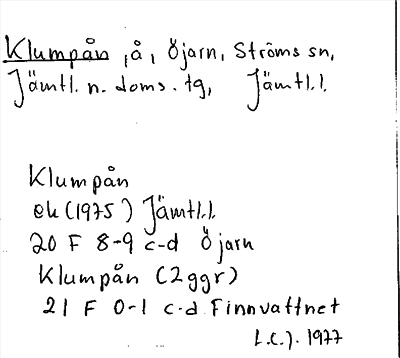 Klumpån, å, Öjarn, Ströms sn,
Jämtl. n. doms. tg, Jämtl.l.
Klumpån
ek (1975) Jämtl.l.
20 F 8-9 c-d Öjarn
Klumpån (2 ggr)
21 F 0-1 c-d Finnvattnet
L.C.J. 1977